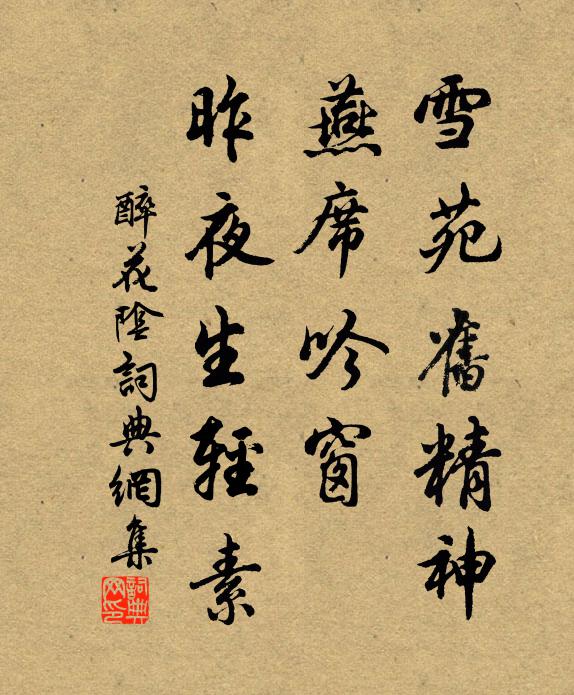 雪苑舊精神
燕席吟窗
昨夜生輕素
醉花陰詞典網集
詞典网印